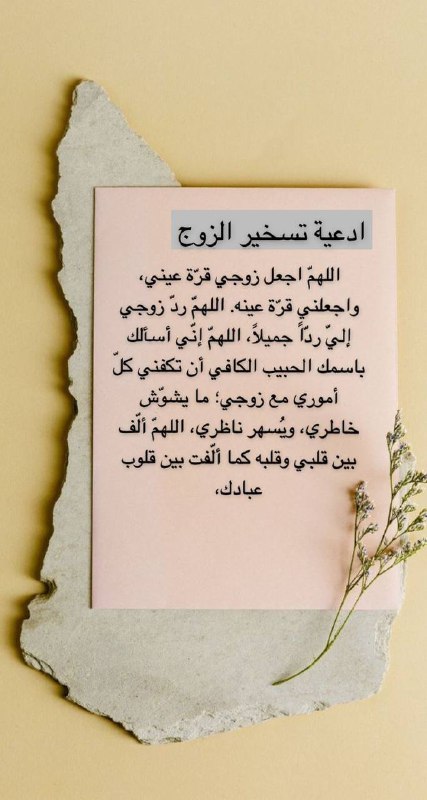 ادعية تسخير الزوج
اللهمّ اجعل زوجي قرّة عيني،
واجعلني قرّة عينه. اللهمّ ردّ زوجي
إليّ ردّاً جميلاً، اللهمّ إنّي أسألك
باسمك الحبيب الكافي أن تكفني كلّ
أموري مع زوجي؛ ما يشوّش
خاطري، ويُسهر ناظري، اللهمّ ألّف
بين قلبي وقلبه كما ألّفت بين قلوب
عبادك،